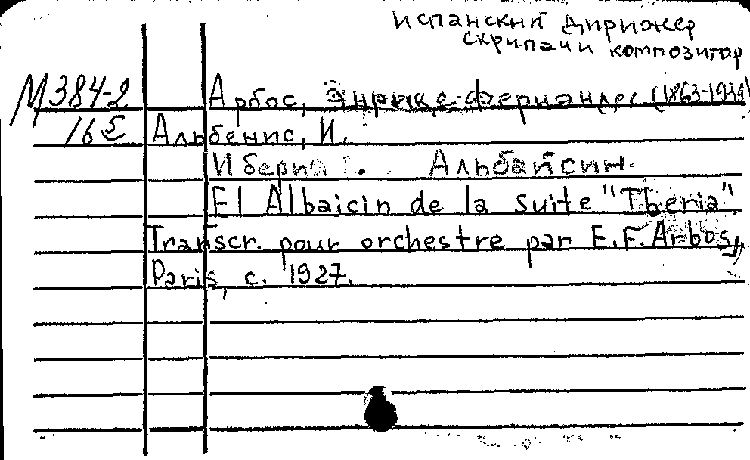 испанский дирижер
скрипач и композитор
М 384-2 Арбос, Энрике Фернандес (1863-1939)
16 Альбенис, И.
Иберия. Альбайсин.
El Albaicin de la suite "Iberia".
Transcr. pour orchestre par E. F. Arbos,
Paris, c. 1927.